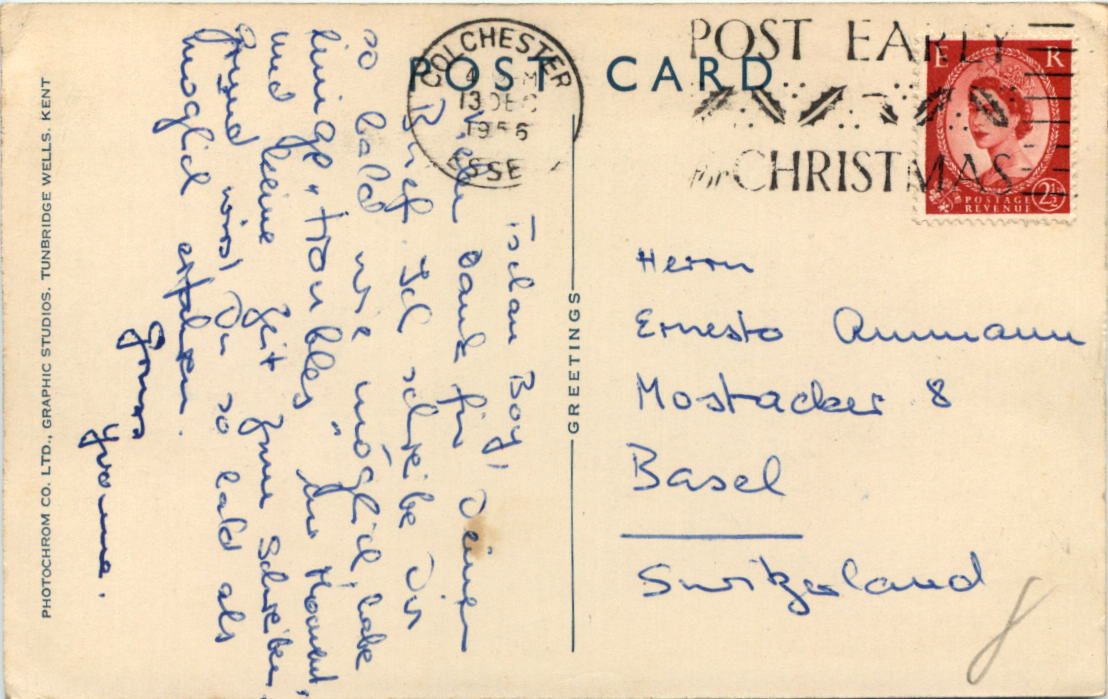 POST CARD
COLCHESTER
13 DEC
1956
ESSE
POST EARLY
for CHRISTMAS
E R
POSTAGE
REVENUE
2½
Boy,
Vielen Dank für Deinen
Brief. Ich schreibe Dir
so bald wie möglich, habe
einige "troubles" im Moment,
und keine Zeit zum Schreiben,
wirst Du so bald als
möglich erfahren.
Yvonne.
GREETINGS
Herrn
Ernesto Ammann
Mostacker 8
Basel
Switzerland
PHOTOCHROM CO. LTD., GRAPHIC STUDIOS, TUNBRIDGE WELLS, KENT